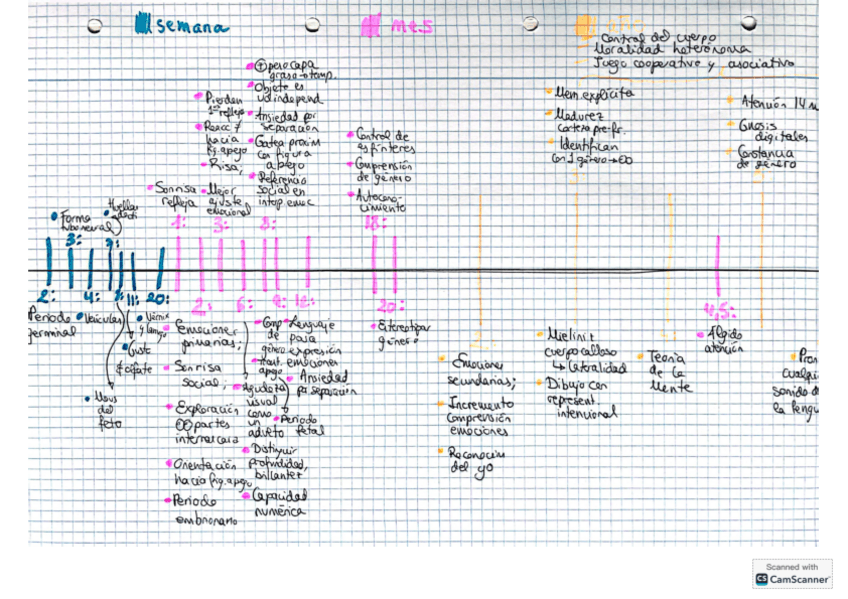 semana
mes
año
Control del cuerpo
Moralidad heterónoma
Juego cooperativo y asociativo
⊕ peso capa
grasa → temp.
Objeto es
independ
Ansiedad por
separación
Gatea proxim
con figura
apego
Referencia
social en
Pierden
reflejo
hacia
fig. apego
Risa,
Sonrisa
refleja
Mejor
ajuste
emocional
Control de
esfínteres
Comprensión
de género
Autocono-
cimiento
Mem. explícita
Madurez
corteza pre-fr.
Identifican
con 1 género
Atención 14 m
Gnosis
digitales
Constancia
de género
Forma
Huellas
3:
7:
1:
3:
8:
18:
2:
4:
11:
20:
2:
6:
9:
12:
20:
4,5:
Periodo
germinal
Gusto
y olfato
Movs
del
feto
Emociones
primarias;
Sonrisa
social;
Exploración
partes
interna cara
Orientación
hacia fig. apego
Periodo
embrionario
Comp
de
género
apego
Agudeza
visual
como
un
adulto
Distinguir
profundidad,
brillantez
Capacidad
numérica
Lenguaje
para
expresión
emociones
Ansiedad
por separación
Periodo
fetal
Estereotipos
género
Emociones
secundarias;
Incremento
comprensión
emociones
Reconocim
del yo
Mielini.t
cuerpo calloso
↳ lateralidad
Dibujo con
represent.
intencional
Teoría
de la
Mente
Algido
atención
Pron
cualqui
sonido d
la lengu
Scanned with
CS CamScanner